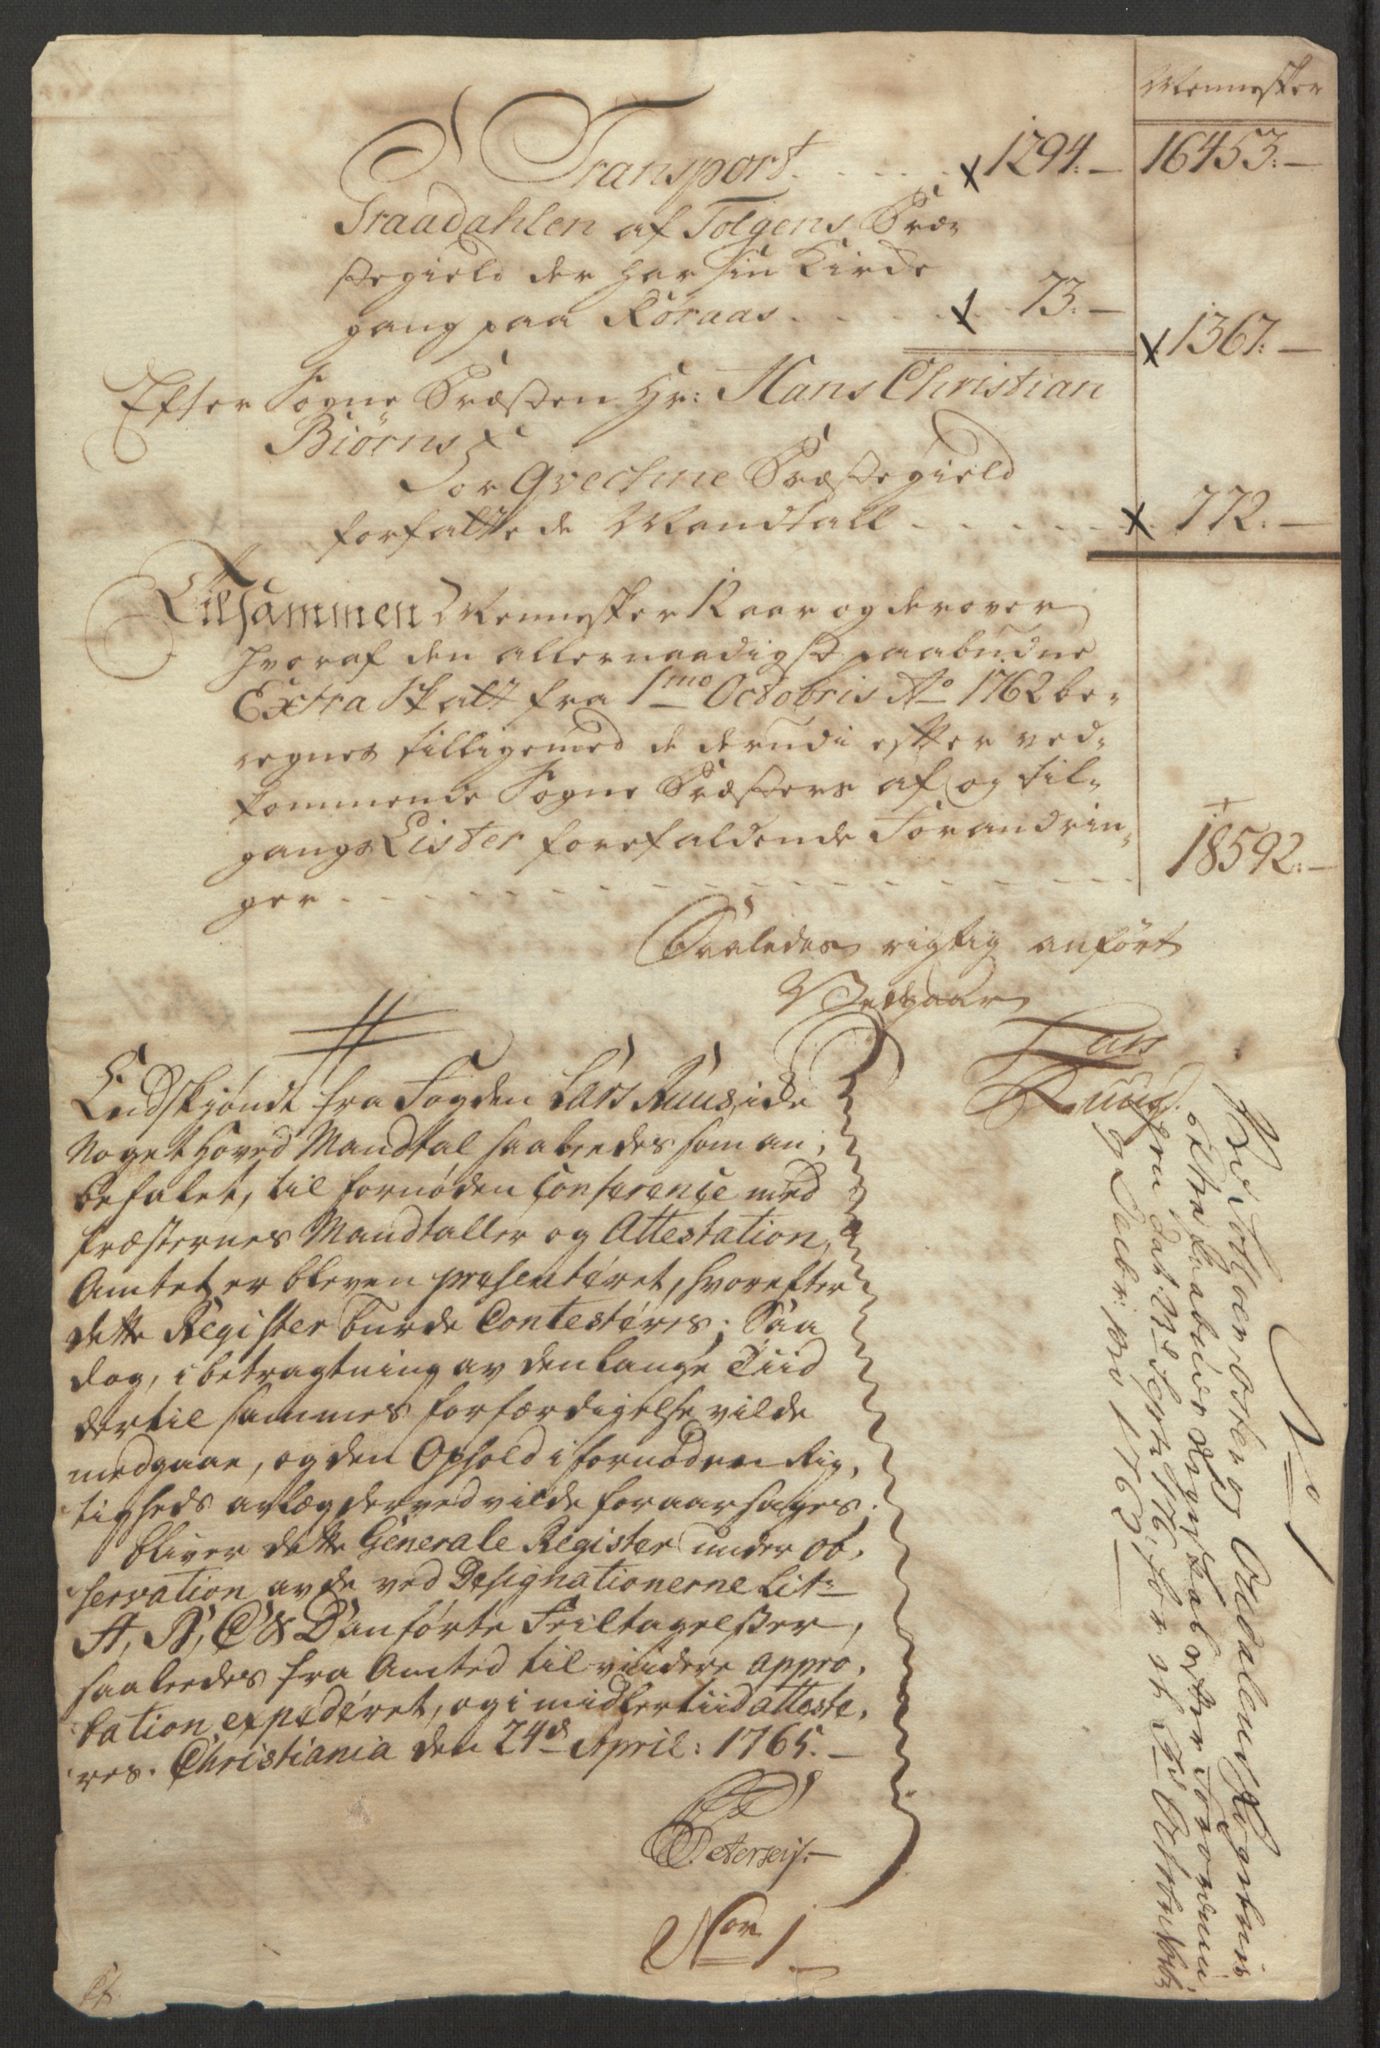 Mennesker
Transport . . . . . x 1294. — 16453. —
Praadahlen af Tolgens Præ-
stegield der har sin Kirke
gang paa Röraas . . . . . x 73. —
x 1367. —
Efter Sogne Præsten Hr: Hans Christian
Biörns
For Qvechne Præstegield
forfattede Mandtall . . . . . x 772. —
Tilsammen Mennesker 12 aar og derover
hvoraf den allernaadigst paabudne
Extra Skatt fra 1mo Octobris Ao 1762 be-
regnes tilligemed de derudi efter ved-
kommende Sogne Præsters af og til-
gangs Lister forefaldende Forandrin-
ger . . . . . 18592. —
Saaledes rigtig anfört
Lars
Ruus.
Endskjöndt fra Fogden Lars Ruus, ide
Noget Hoved Mandtal saaleedes som an-
befalet, til fornöden Conference med
Præsternes Mandtaller og Attestation,
Amtet er bleven præsenteret, hvorefter
dette Register burde Contesteres; Saa
dog, i betragtning av den lange Tiid
dertil sammes forfærdigelse vilde
medgaae, og den Ophold i fornöden Rig-
tigheds avlæg derved vilde foraarsages;
bliver dette Generale Register under ob-
servation av de ved Designationerne Litr
A, B, C & D anförte Feiltagelser,
saaleedes fra Amted til viidere appro-
bation expederet, og i midlertiid atteste-
res. Christiania den 24d April: 1765. —
Petersen. —
Nor 1
No 1